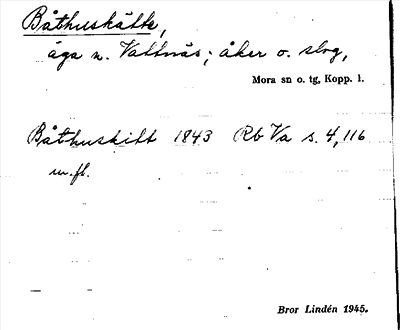 Båthuskätte,
äga n. Vattnäs; åker o. slog,
Mora sn o. tg, Kopp. l.
Båthuskitt 1843 Rb Va s. 4, 116
m.fl.
Bror Lindén 1945.